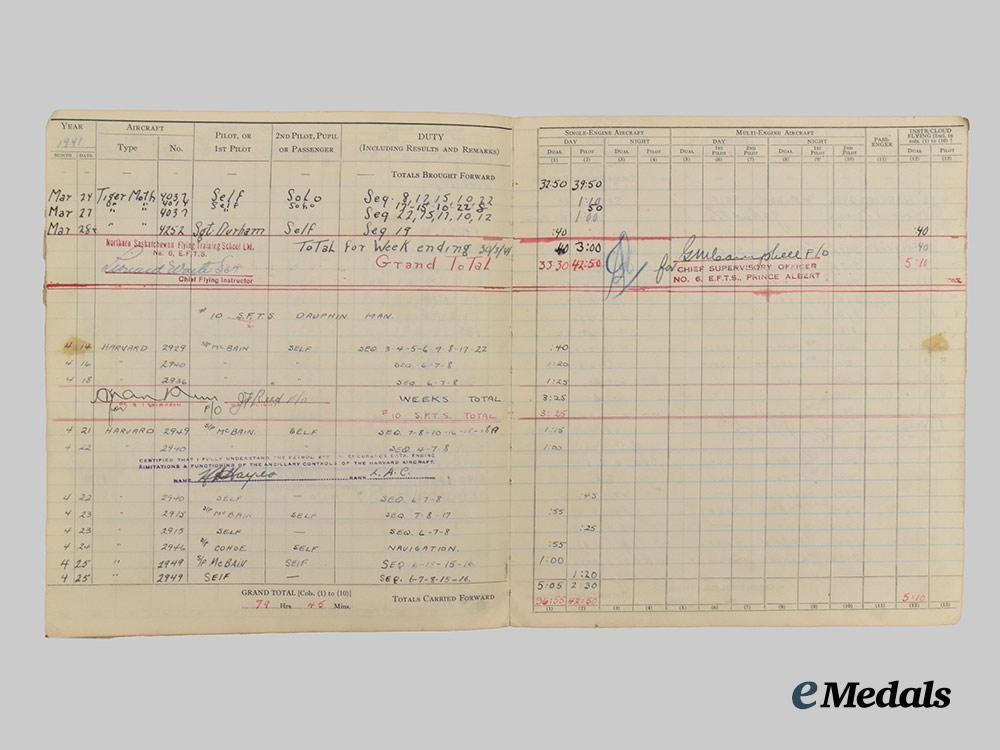 YEAR AIRCRAFT PILOT, OR 1ST PILOT 2ND PILOT, PUPIL OR PASSENGER DUTY (INCLUDING RESULTS AND REMARKS) SINGLE-ENGINE AIRCRAFT MULTI-ENGINE AIRCRAFT PASSENGER INSTR/CLOUD FLYING [Incl. in cols. (1) to (10)]
1941 DAY NIGHT DAY NIGHT
MONTH DATE Type No. DUAL PILOT DUAL PILOT DUAL 1ST PILOT 2ND PILOT DUAL 1ST PILOT 2ND PILOT DUAL PILOT
(1) (2) (3) (4) (5) (6) (7) (8) (9) (10) (11) (12) (13)
— — — — TOTALS BROUGHT FORWARD 32:50 39:50
Mar 24 Tiger Moth 4032 Self Solo Seq. 8, 12, 15, 10, 22 1:10
" " Self Solo :50
Mar 27 " " 4037 Seq 22, 15, 17, 10, 12 1:00
Mar 28 " " 4252 Sgt Durham Self Seq 19 :40 :40
Northern Saskatchewan Flying Training School Ltd. Total for Week ending 30/3/41 40 3:00 :40
No. 6, E.F.T.S. Grand Total 33:30 42:50 5:10
Chief Flying Instructor
for CHIEF SUPERVISORY OFFICER
NO. 6, E.F.T.S., PRINCE ALBERT
# 10 S.F.T.S. DAUPHIN MAN.
4 14 HARVARD 2929 S/P McBAIN SELF SEQ. 3-4-5-6-7-8-17-22 :40
4 16 " 2940 " " SEQ. 6-7-8 1:20
4 18 " 2936 " " SEQ. 6-7-8 1:25
WEEKS TOTAL 3:25
for F/O # 10 S.F.T.S. TOTAL 3:25
4 21 HARVARD 2949 S/P McBAIN. SELF SEQ. 7-8-10-16-15-18A 1:15
4 22 " 2940 " " SEQ. 6-7-8 1:00
CERTIFIED THAT I FULLY UNDERSTAND THE PETROL SYSTEM
LIMITATIONS & FUNCTIONING OF THE ANCILLARY CONTROLS OF THE HARVARD AIRCRAFT.
NAME RANK L.A.C.
4 22 " 2940 SELF — SEQ. 6-7-8 :45
4 23 " 2915 S/P McBAIN SELF SEQ. 7-8-17 :55
4 23 " 2915 SELF — SEQ. 6-7-8 :25
4 24 " 2946 S/P COHOE SELF NAVIGATION. :55
4 25 " 2949 S/P McBAIN SELF SEQ. 6-15-15-16. 1:00
4 25 " 2949 SELF — SEQ. 6-7-8-15-16. 1:20
5:05 2:30
GRAND TOTAL [Cols. (1) to (10)] TOTALS CARRIED FORWARD 36:55 42:50 5:10
79 Hrs. 45 Mins.
(1) (2) (3) (4) (5) (6) (7) (8) (9) (10) (11) (12) (13)
eMedals